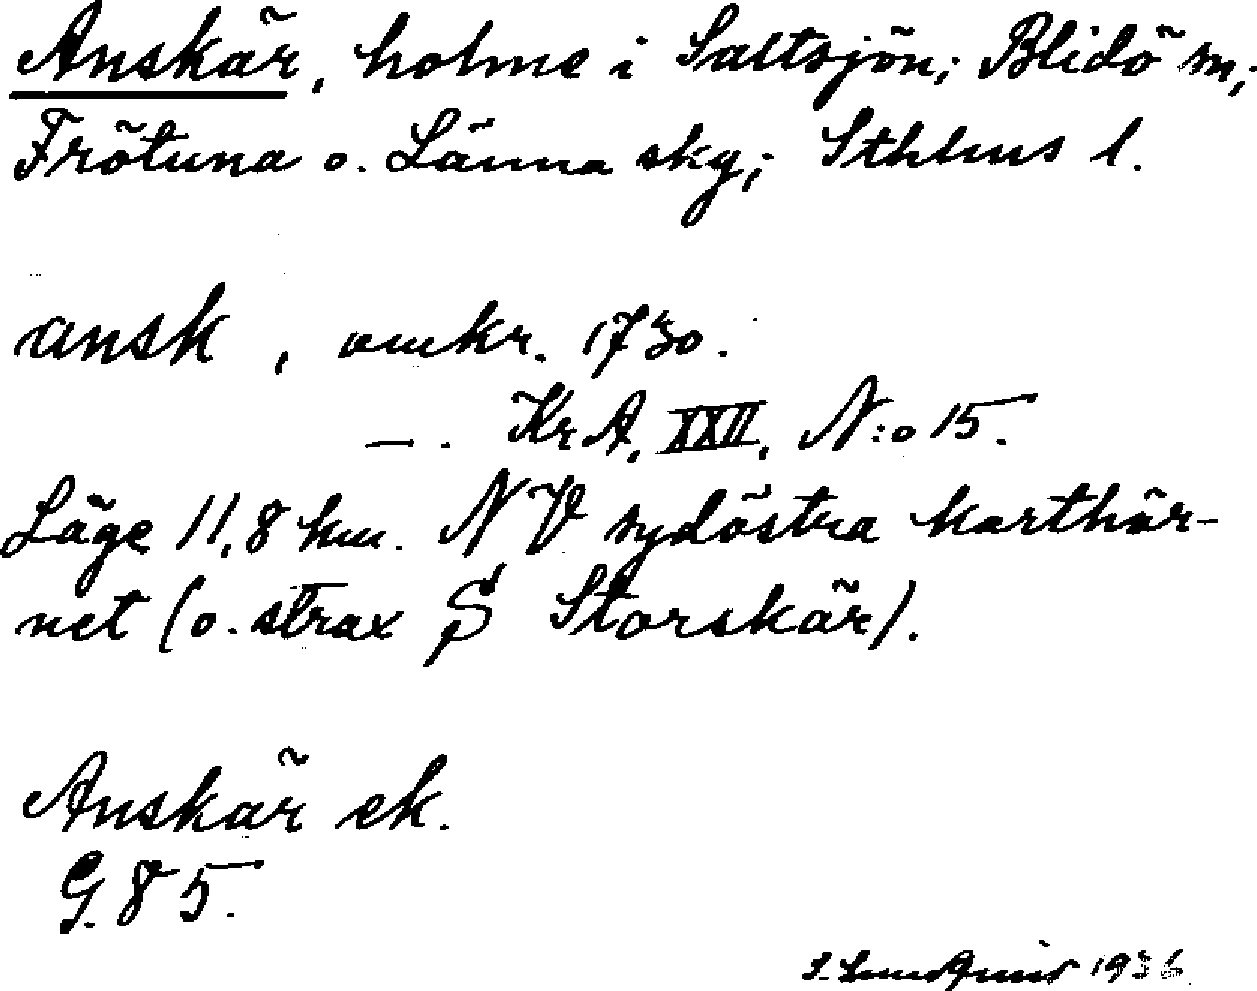 Anskär, holme i Saltsjön; Blidö sn;
Frötuna o. Länna skg; Sthlms l.
ansk, omkr. 1730.
—. KrA. XXII, N:o 15.
Läge 11,8 km. NV sydöstra karthör-
net (o. strax S Storskär).
Anskär ek.
G. 85.
S. Lundquist 1936